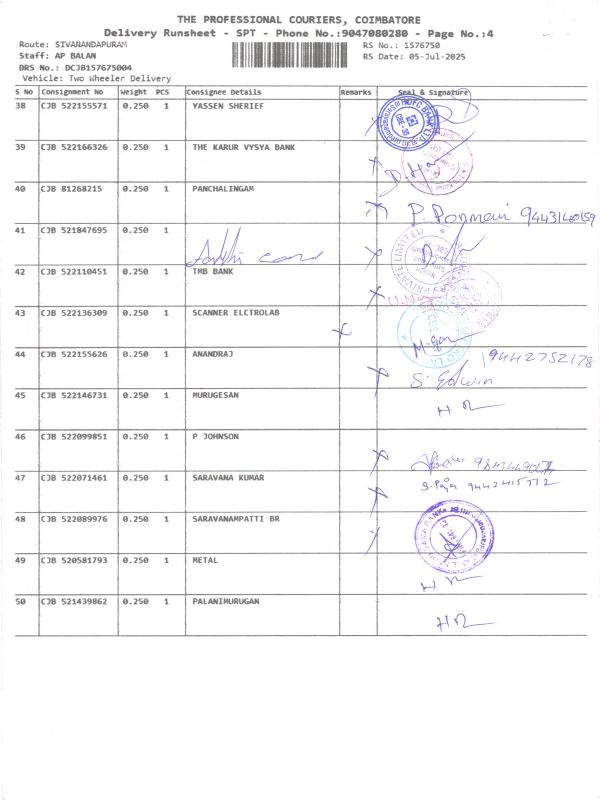 THE PROFESSIONAL COURIERS, COIMBATORE
Delivery Runsheet - SPT - Phone No.:9047080280 - Page No.:4
Route: SIVANANDAPURAM RS No.: 1576750
Staff: AP BALAN RS Date: 05-Jul-2025
DRS No.: DCJB157675004
Vehicle: Two Wheeler Delivery
S No Consignment No Weight PCS Consignee Details Remarks Seal & Signature
38 CJB 522155571 0.250 1 YASSEN SHERIEF
HDFC BANK LTD
39 CJB 522166326 0.250 1 THE KARUR VYSYA BANK
40 CJB 81268215 0.250 1 PANCHALINGAM
P. Ponmani 9443140159
41 CJB 521847695 0.250 1
PRIVATE LIMITED
42 CJB 522110451 0.250 1 TMB BANK
43 CJB 522136309 0.250 1 SCANNER ELCTROLAB
44 CJB 522155626 0.250 1 ANANDRAJ
9442752178
S. Edwin
45 CJB 522146731 0.250 1 MURUGESAN
46 CJB 522099851 0.250 1 P JOHNSON
47 CJB 522071461 0.250 1 SARAVANA KUMAR
S. Raja 9442415772
48 CJB 522089976 0.250 1 SARAVANAMPATTI BR
49 CJB 520581793 0.250 1 METAL
50 CJB 521439862 0.250 1 PALANIMURUGAN